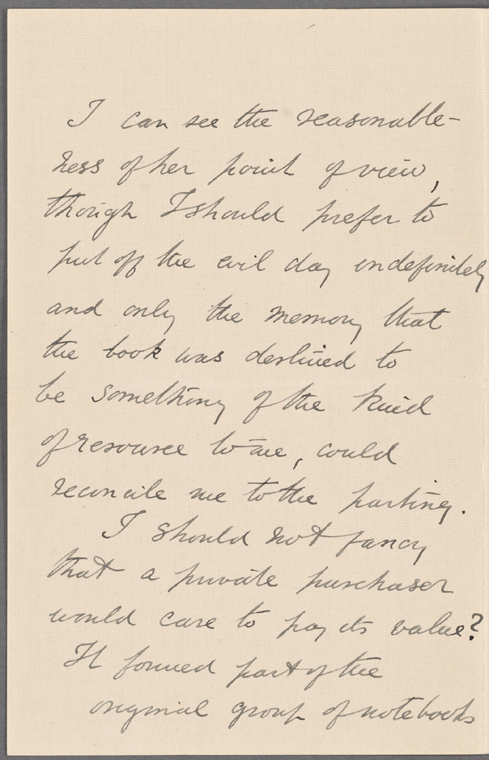 I can see the reasonable-
ness of her point of view,
though I should prefer to
put off the evil day indefinitely
and only the memory that
the book was destined to
be something of the kind
of resource to me, could
reconcile me to the parting.
I should not fancy
that a private purchaser
would care to pay its value?
It formed part of the
original group of notebooks